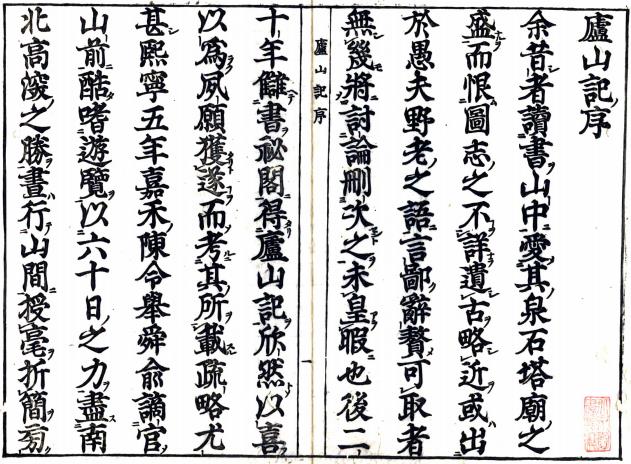 廬山記序
余昔者讀書山中愛其泉石塔廟之
盛而恨圖志之不詳遺古略近或出
於愚夫野老之語言鄙辭贅可取者
無幾將討論刪次之未皇暇也後二
廬山記序
十年讎書祕閣得廬山記欣然以喜
以爲夙願獲遂而考其所載疏略尤
甚熙寧五年嘉禾陳令舉舜俞謫官
山前酷嗜遊覽以六十日之力盡南
北高深之勝晝行山間授毫折簡旁